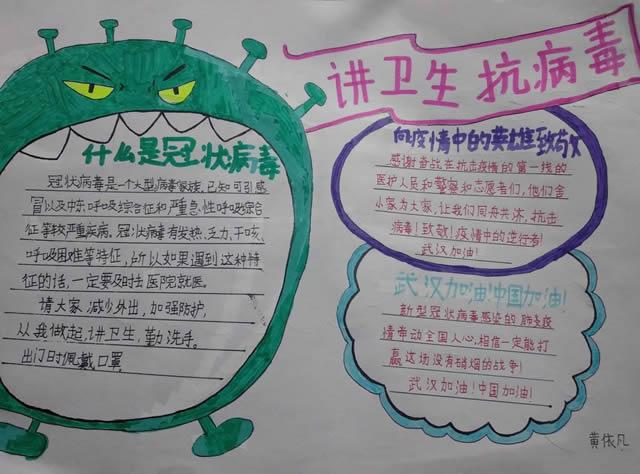 讲卫生 抗病毒
什么是冠状病毒
冠状病毒是一个大型病毒家族,已知可引感
冒以及中东呼吸综合征和严重急性呼吸综合
征等较严重疾病。冠状病毒有发热、乏力、干咳、
呼吸困难等特征,所以如果遇到这种特
征的话,一定要及时去医院就医。
请大家减少外出,加强防护,
从我做起,讲卫生,勤洗手。
出门时佩戴口罩
向疫情中的英雄致敬
感谢奋战在抗击疫情的第一线的
医护人员和警察和志愿者们,他们舍
小家为大家,让我们同舟共沐,抗击
病毒!致敬!疫情中的逆行者!
武汉加油!
武汉加油!中国加油!
新型冠状病毒感染的肺炎疫
情牵动全国人心,相信一定能打
赢这场没有硝烟的战争!
武汉加油!中国加油!
黄依凡